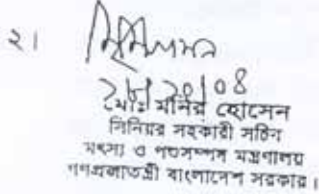 ২।
মোঃ মনির হোসেন
সিনিয়র সহকারী সচিব
মৎস্য ও পশুসম্পদ মন্ত্রণালয়
গণপ্রজাতন্ত্রী বাংলাদেশ সরকার।